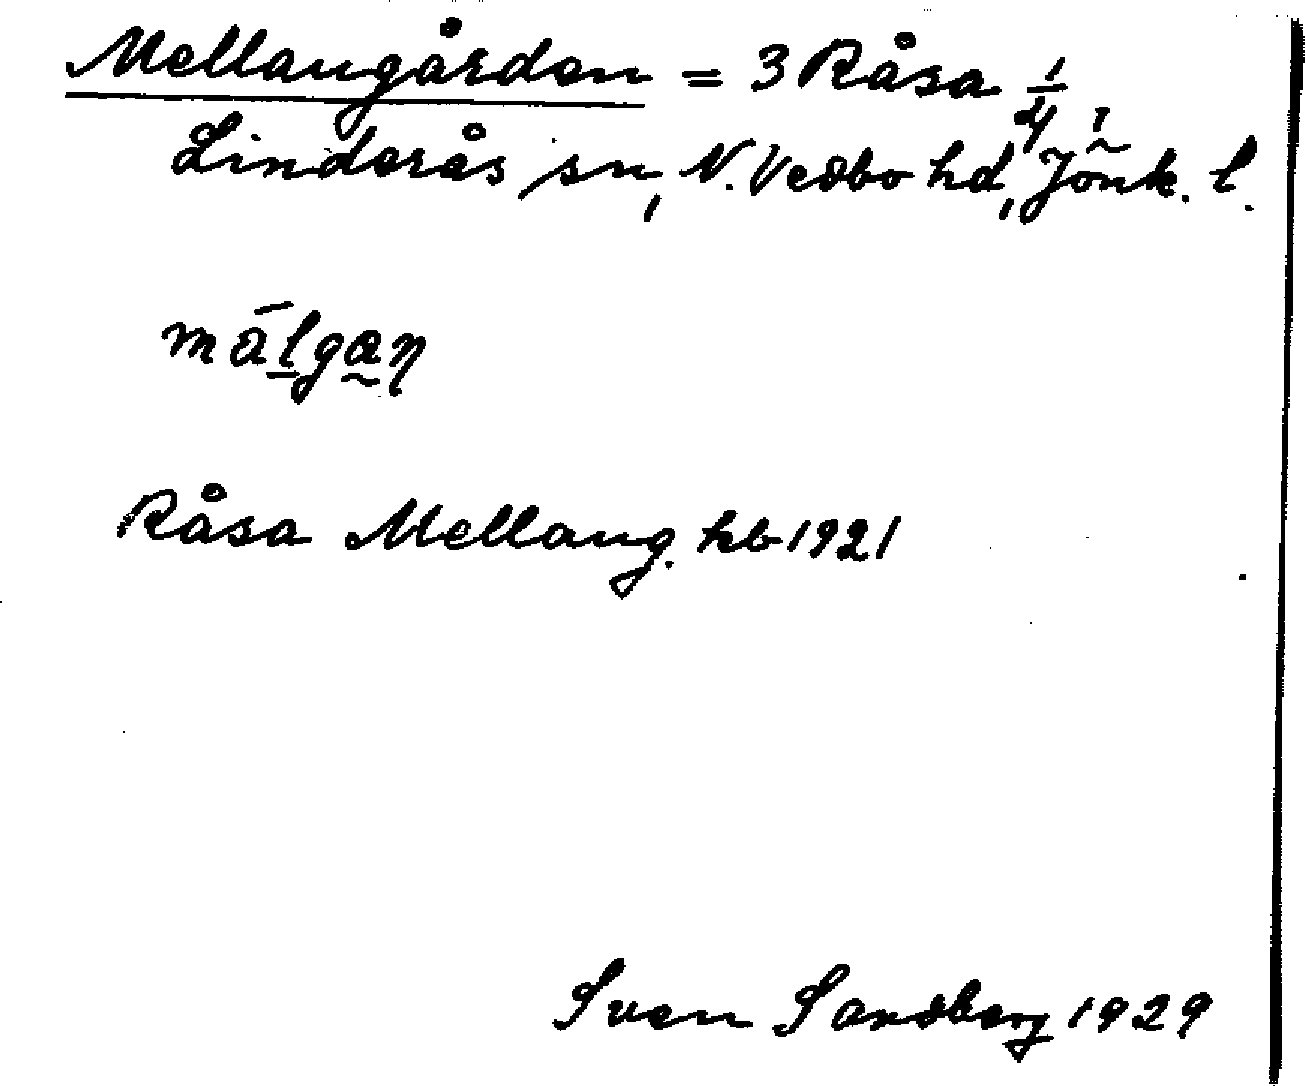 Mellangården = 3 Råsa 1/4 1
Linderås sn, N. Vedbo hd, Jönk. l.
målgan
Råsa Mellang. hb 1921
Sven Sandberg 1929